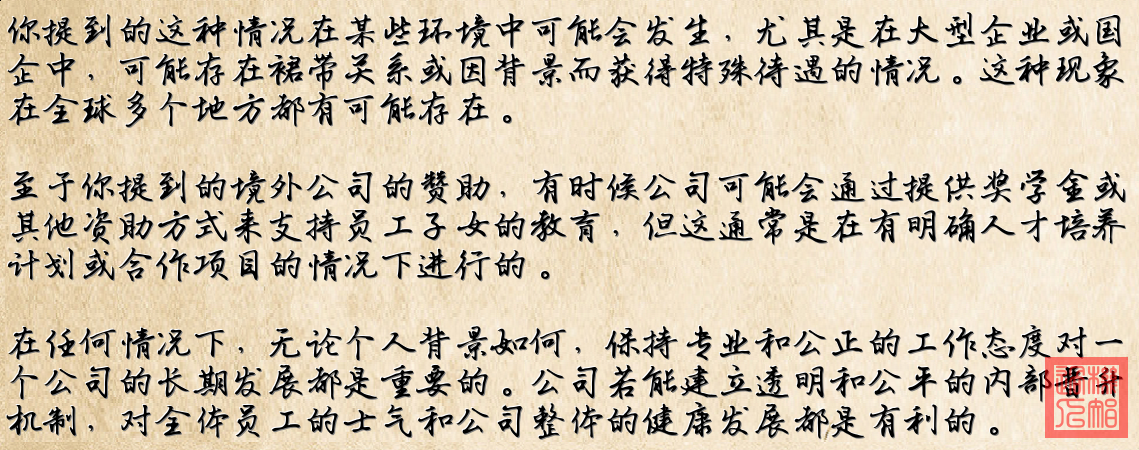 你提到的这种情况在某些环境中可能会发生，尤其是在大型企业或国
企中，可能存在裙带关系或因背景而获得特殊待遇的情况。这种现象
在全球多个地方都有可能存在。
至于你提到的境外公司的赞助，有时候公司可能会通过提供奖学金或
其他资助方式来支持员工子女的教育，但这通常是在有明确人才培养
计划或合作项目的情况下进行的。
在任何情况下，无论个人背景如何，保持专业和公正的工作态度对一
个公司的长期发展都是重要的。公司若能建立透明和公平的内部晋升
机制，对全体员工的士气和公司整体的健康发展都是有利的。